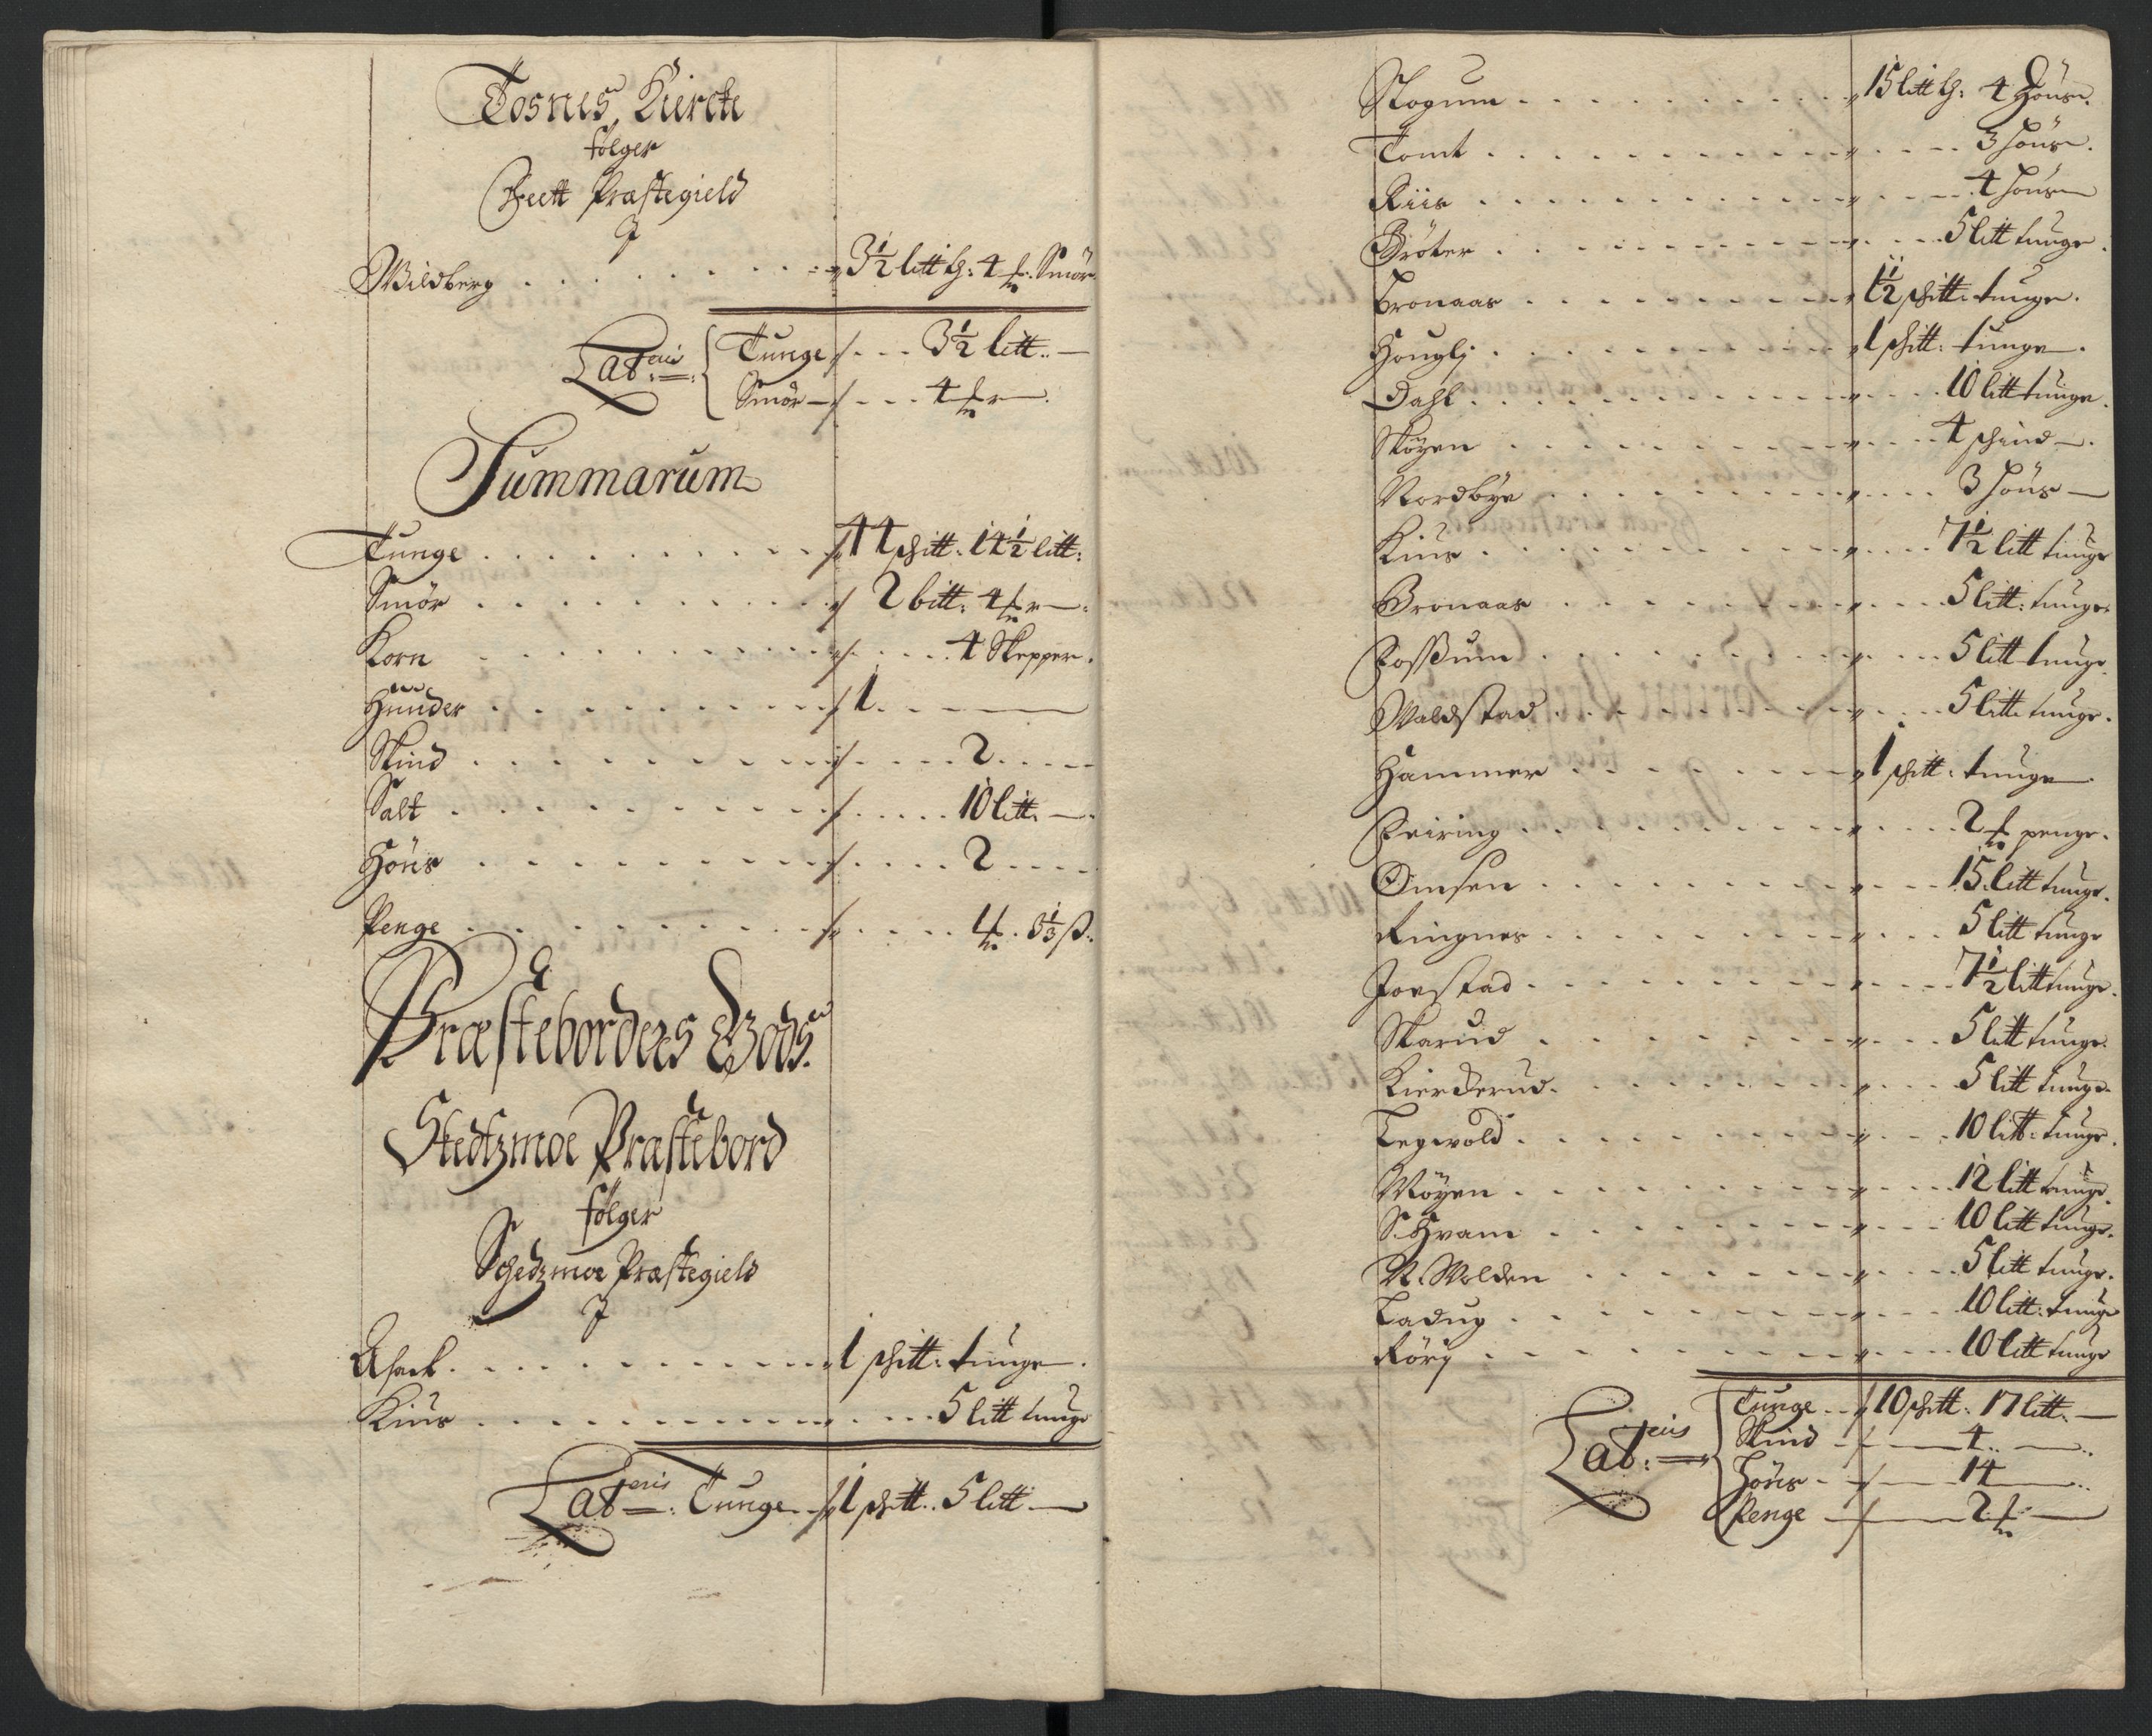 Tosnes, Kiercke
følger
Feett Præstegield
Wildberg . . . 3½ litt tg: 4 Smör
Lateris: Tunge . . . 3½ litt: —
Smör — . . . 4 —
Summarum
Tunge . . . 44 schitt: 14½ litt:
Smör . . . 2 bitt: 4 —:
Korn . . . 4 Skepper.
Hünder . . . 1 —
Skind . . . 2 . . .
Salt . . . 10 litt: —
Höns . . . 2 . . .
Penge . . . 3⅓ ß:
Præstebordets Gods
Skedtzmoe Præstebord
følger
Schedzmoe Præstegield
Asack . . . 1 schitt: tunge.
Kius . . . 5 litt tunge
Lateris: Tunge — 1 schitt: 5 litt —
Skogum . . . 15 litt tg: 4 Höns.
Tomt . . . 3 Höns.
Riis . . . 4 Höns
Bröter . . . 5 litt tunge.
Bronaas . . . 1½ schitt: tunge.
Houglj . . . 1 schitt: tunge.
Dahl . . . 10 litt tunge.
Skøyen . . . 4 schind —.
Nordbye . . . 3 Höns —
Kius . . . 7½ litt tunge
Bronaas . . . 5 litt: tunge.
Fossum . . . 5 litt tunge.
Waldstad . . . 5 litt tunge.
Hammer . . . 1 schitt: tunge.
Feiring . . . 2 penge.
Omsen . . . 15 litt tunge.
Ringnes . . . 5 litt tunge
Jonstad . . . 7½ litt tunge.
Skarud . . . 5 litt tunge.
Kierkerud . . . 5 litt tunge.
Legwold . . . 10 litt: tunge.
Møyen . . . 12 litt tunge.
S: Hvam . . . 10 litt tunge.
N. Wolden . . . 5 litt tunge.
Ladug . . . 10 litt: tunge
Rörg . . . 10 litt tunge
Lateris: Tunge . . 10 schitt: 17 litt: —
Skind — 4 . . —
Höns — 14 —
Penge — 2 —